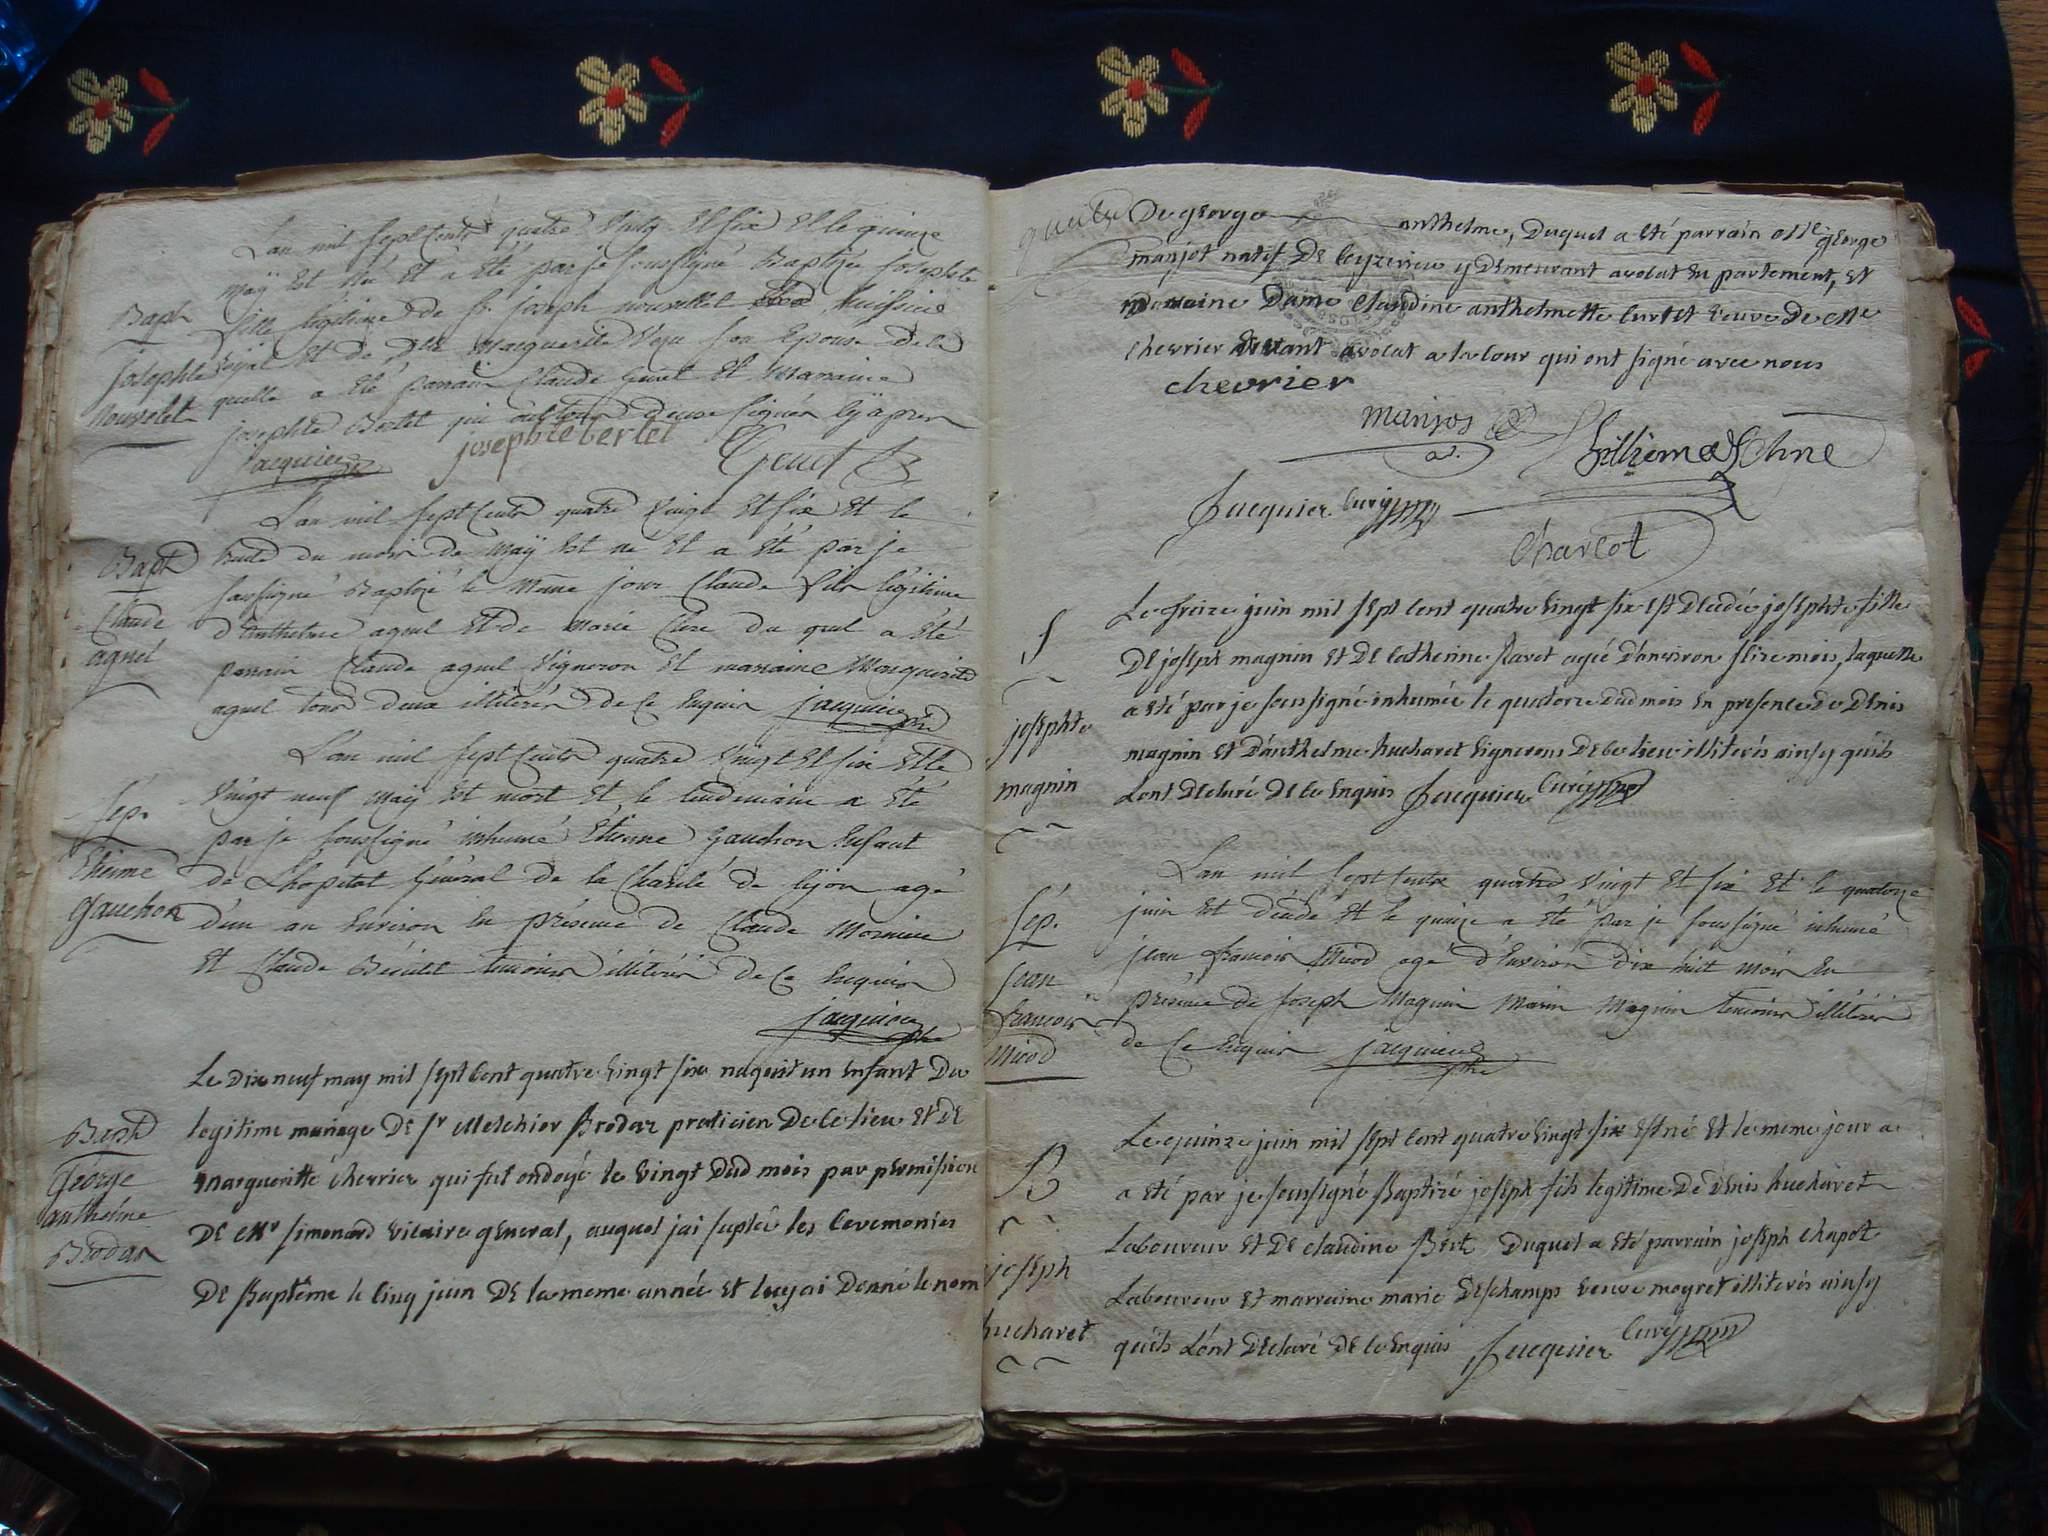 Lan mil sept Cents quatre vingt et six et le quinze
may est né et a été par je soussigné Baptizée Josephte
Baph
fille légitime de Sr joseph nouvellet huissier
Josephte
royal et de dlle Marguerite son Epouse de la
Nouvelet
quelle a été parrain Claude Genet et Marraine
josephte Bertet qui ont tous deux signés cy après
jacquier ptre
josephte bertet
Genet
Lan mil sept Cents quatre vingt et six et le
Baph
trente du mois de may est né et a été par je
Claude
agnel
soussigné Baptizé le même jour Claude fils légitime
d'anthelme agnel et de Marie Clere du quel a été
parrain Claude agnel vigneron et marraine Marguerite
agnel tous deux illiterés de Ce Enquis jacquier ptre
L'an mil sept Cents quatre vingt et six et le
Sép.
Etienne
Gauchon
vingt neuf may est mort et le lendemain a été
par je soussigné inhumé Etienne Gauchon Enfant
de L'hopital Général de la Charité de lyon agé
d'un an Environ en présence de Claude
et Claude temoins illiterés de Ce Enquis
jacquier ptre
Le dix neuf may mil sept cent quatre vingt six naquit un enfant du
Baph
George
anthelme
Brodaz
legitime mariage de Sr Melchior Brodaz praticien de ce lieu et de
margueritte chevrier qui fut ondoyé le vingt dud mois par permission
de Mr simonard vicaire general, auquel jai supléé les ceremonies
de Baptême le cinq juin de la meme année et luy ai donné le nom
de george anthelme, duquel a été parrain Mre george
manjot natif de ceyzerieu y demeurant avocat en parlement, et
marraine dame claudine anthelmette curtet veuve de Mre
chevrier vivant avocat a la cour qui ont signé avec nous
chevrier
manjos
Jacquier curé
Charcot
S
josephte
magnin
Le treize juin mil sept cent quatre vingt six est décédée josephte fille
de joseph magnin et de catherine ravet agée d'environ seize mois, laquelle
a été par je soussigné inhumée le quatorze dud mois en presence de denis
magnin et d'anthelme hucharet vignerons de ce lieu illiterés ainsy qu'ils
L'ont déclaré de ce enquis Jacquier curé
Sép.
jean
francois
Miod
Lan mil sept Cents quatre vingt et six et le quatorze
juin est décédé et le quinze a été par je soussigné inhumé
jean francois Miod agé d'Environ dix huit mois En
présence de Joseph Magnin Marin Magnin temoins illiterés
de Ce Enquis jacquier ptre
B
joseph
hucharet
Le quinze juin mil sept cent quatre vingt six est né et le meme jour a
a été par je soussigné Baptizé joseph fils legitime de denis hucharet
Laboureur et de claudine duquel a été parrain joseph chapot
Laboureur et marraine marie deschamps veuve meyret illiterés ainsy
qu'ils L'ont déclaré de ce enquis Jacquier curé